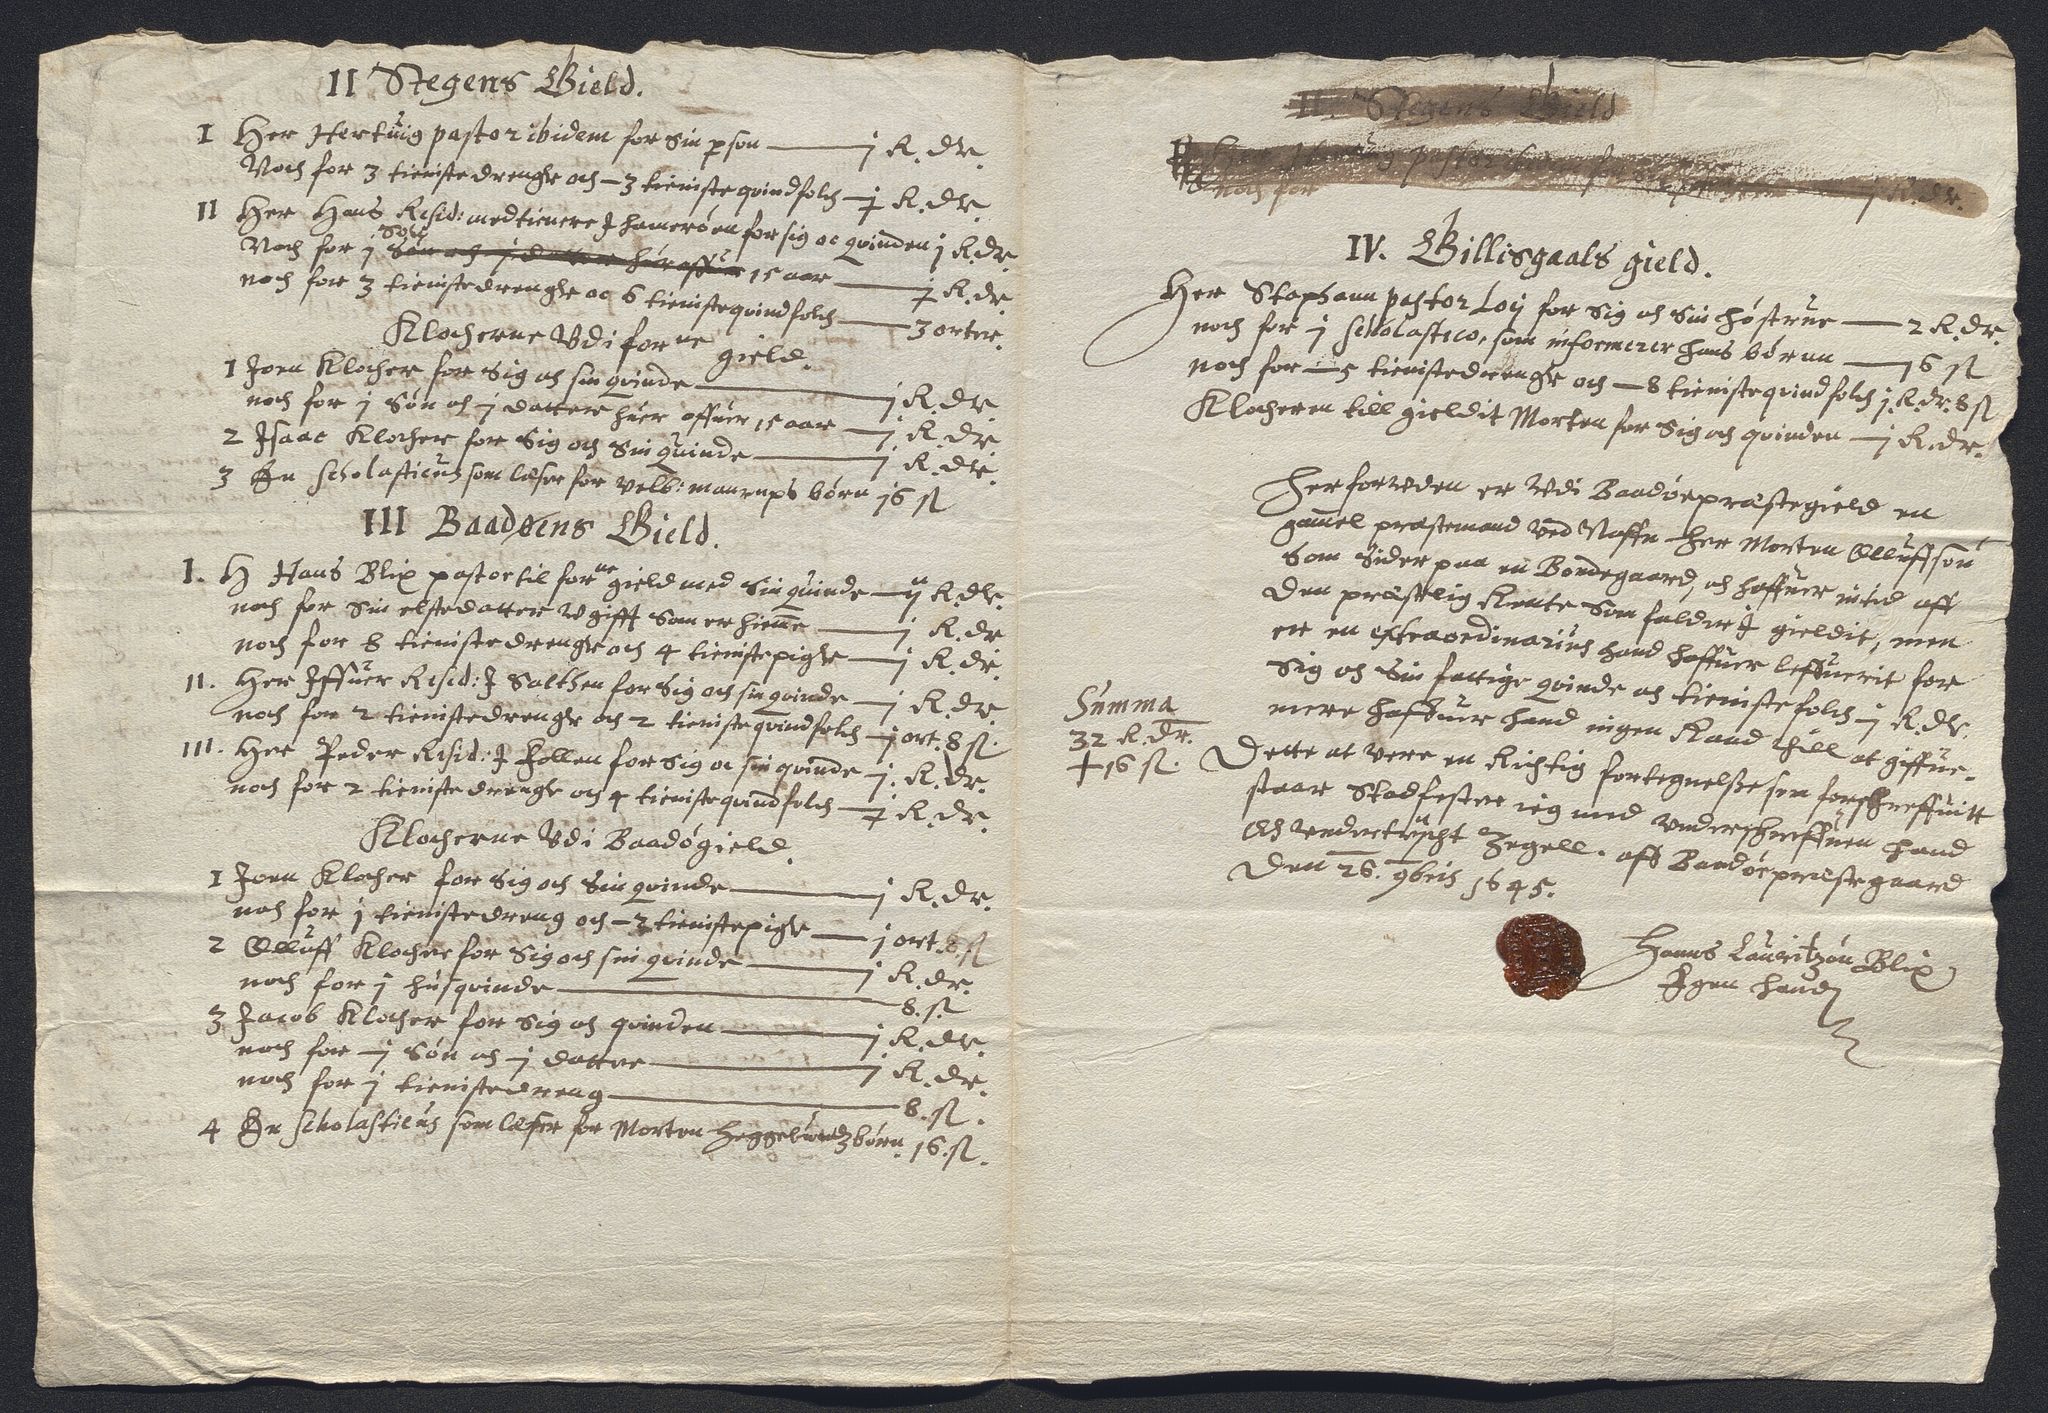 II Stegens Gield.
I Her Hertuig pastor ibidem for Sin pson — j R. dr.
Noch for 3 tienistedrenge och – 3 tienisteqvindfolch — ɟ R. dr.
II Her Hans Resid: medtienere J hamerøen for sig oc qvinden j R. dr.
Noch for j Søn och j datter huer offuer 15 aar — ɟ R. dr
noch for 3 tienistedrenge oc 6 tienisteqvindfolch — 3 orter.
Klocherne Vdi forne gield.
1 Joen Klocher for Sig och sin qvinde — j R. dr
noch for j Søn och j datter huer offuer 15 aar — j R. dr
2 Jsaac Klocher for Sig och Sin quinde — j R. dr.
3 En scholasticus som læser for Velb: maurups børn 16 ſł
III Baadøens Gield.
I. H Hans Blix pastor til forne gield med Sin quinde — ij R. dr.
noch for Sin elste datter Vgifft Som er hieme — j R. dr
noch for 8 tienistedrenge och 4 tienistepige — j R. dr.
II. Her Jffuer Resid: J Salthen for Sig och sin qvinde — j R. dr.
noch for 2 tienistedrenge och 2 tienisteqvindfolch — j ort. 8 ſł.
III. Her Peder Resid: J Follen for Sig oc sin qvinde — j. R. dr.
noch for 2 tienistedrenge och 4 tienisteqvindfolch — ɟ R. dr.
Klocherne Vdi Baadøgield.
1 Joen Klocher for Sig och Sin qvinde — j R. dr.
noch for j tienistedreng och – 2 tienistepige — j ort. 8 ſł
2 Olluff Klocher for Sig och sin qvinde — j R. dr.
noch for j husqvinde — 8. ſł
3 Jacob Klocher for Sig och qvinden — j R. dr.
noch for – j Søn och j datter — j R. dr.
noch for j tienistedreng — 8. ſł.
4 En scholasticus som læser for Morten Heggelundz børn. 16. ſł.
II. Stegens Gield
Her Hertuig pastor ibidem for j R. dr.
noch for
IV. Gillisgaals gield.
Her Staphann pastor Loij for Sig och Sin høstrue — 2 R. dr.
noch for j scholastico, som informerer hans børnn — 16 ſł
noch for – 5 tienistedrenge och – 8 tienisteqvindfolch j. R. dr. 8 ſł
Klocheren till gieldit Morten for Sig och qvinden — j R. dr.
Her foruden er Vdi Baadøepræstegield en
gammel præstemand ved Naffn Her Morten Olluffsøn
Som Sider paa en Bondegaard, och haffuer intid aff
den præstlig Rente Som falder J gieldit, men
er en extraordinarius hand haffuer leffuerit for
Sig och Sin fattige qvinde och tienistefolch – j R. dr.
mere haffuer hand ingen Raad thill at giffue.
Summa
32 R. dr.
ɟ 16 ſł.
Dette at vere en Richtig fortegnelsse som forschreffuitt
staar Stadfester ieg med vnderschreffuen haand
Och vndertrÿcht Zegell. aff Baadøepræstegaard
Den 26. 9bris 1645.
Hanns Lauritzøn Blix
Egen haand